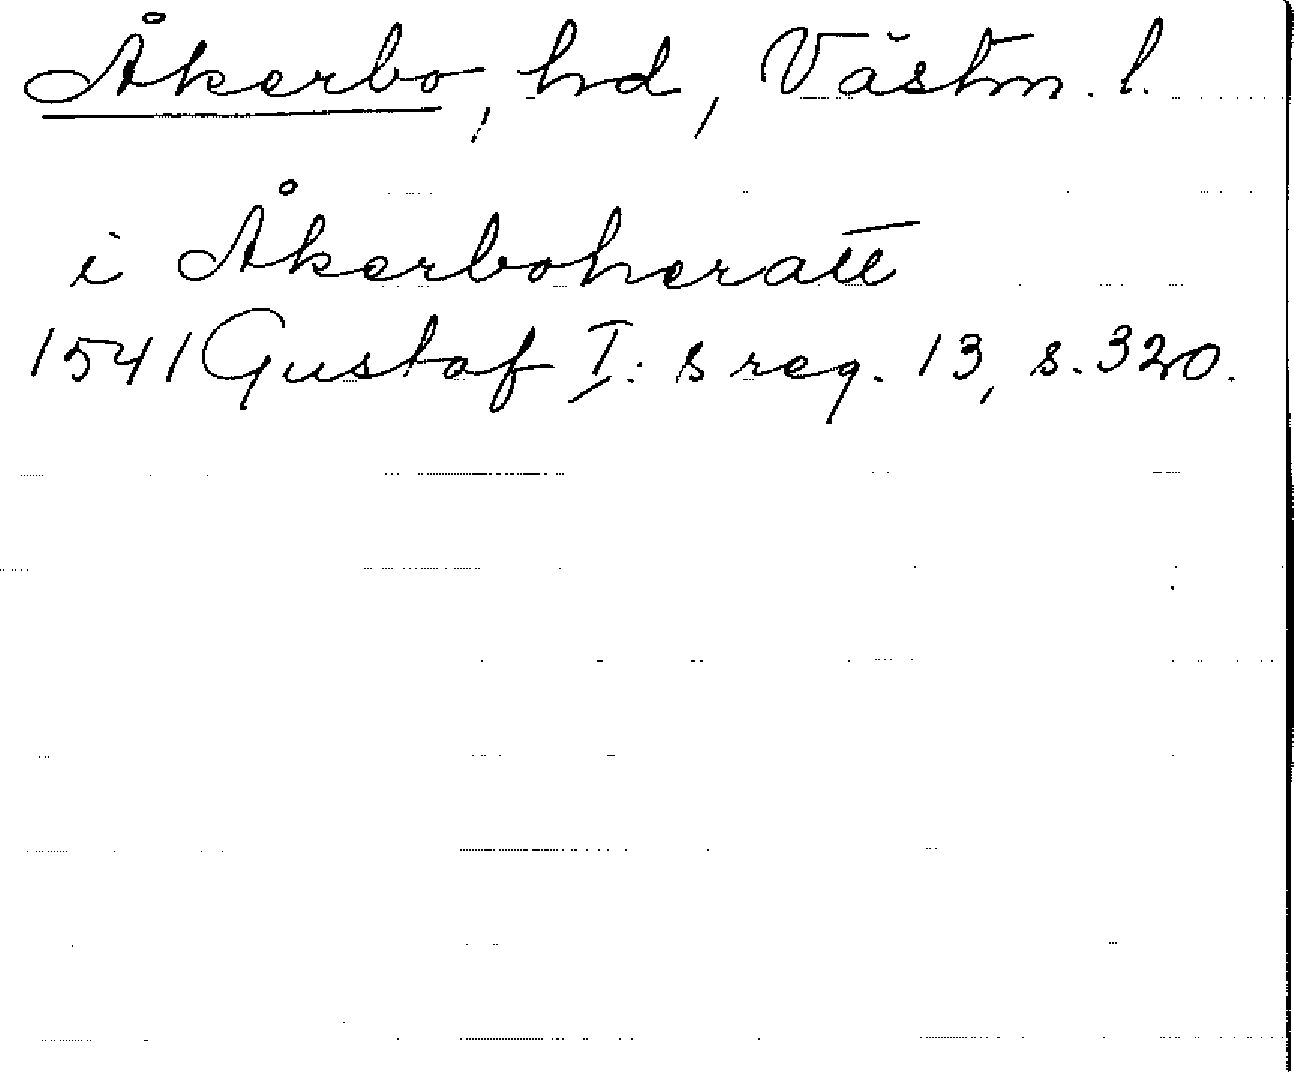 Åkerbo, hd, Västm. l.
i Åkerboheratt
1541 Gustaf I:s reg. 13, s. 320.